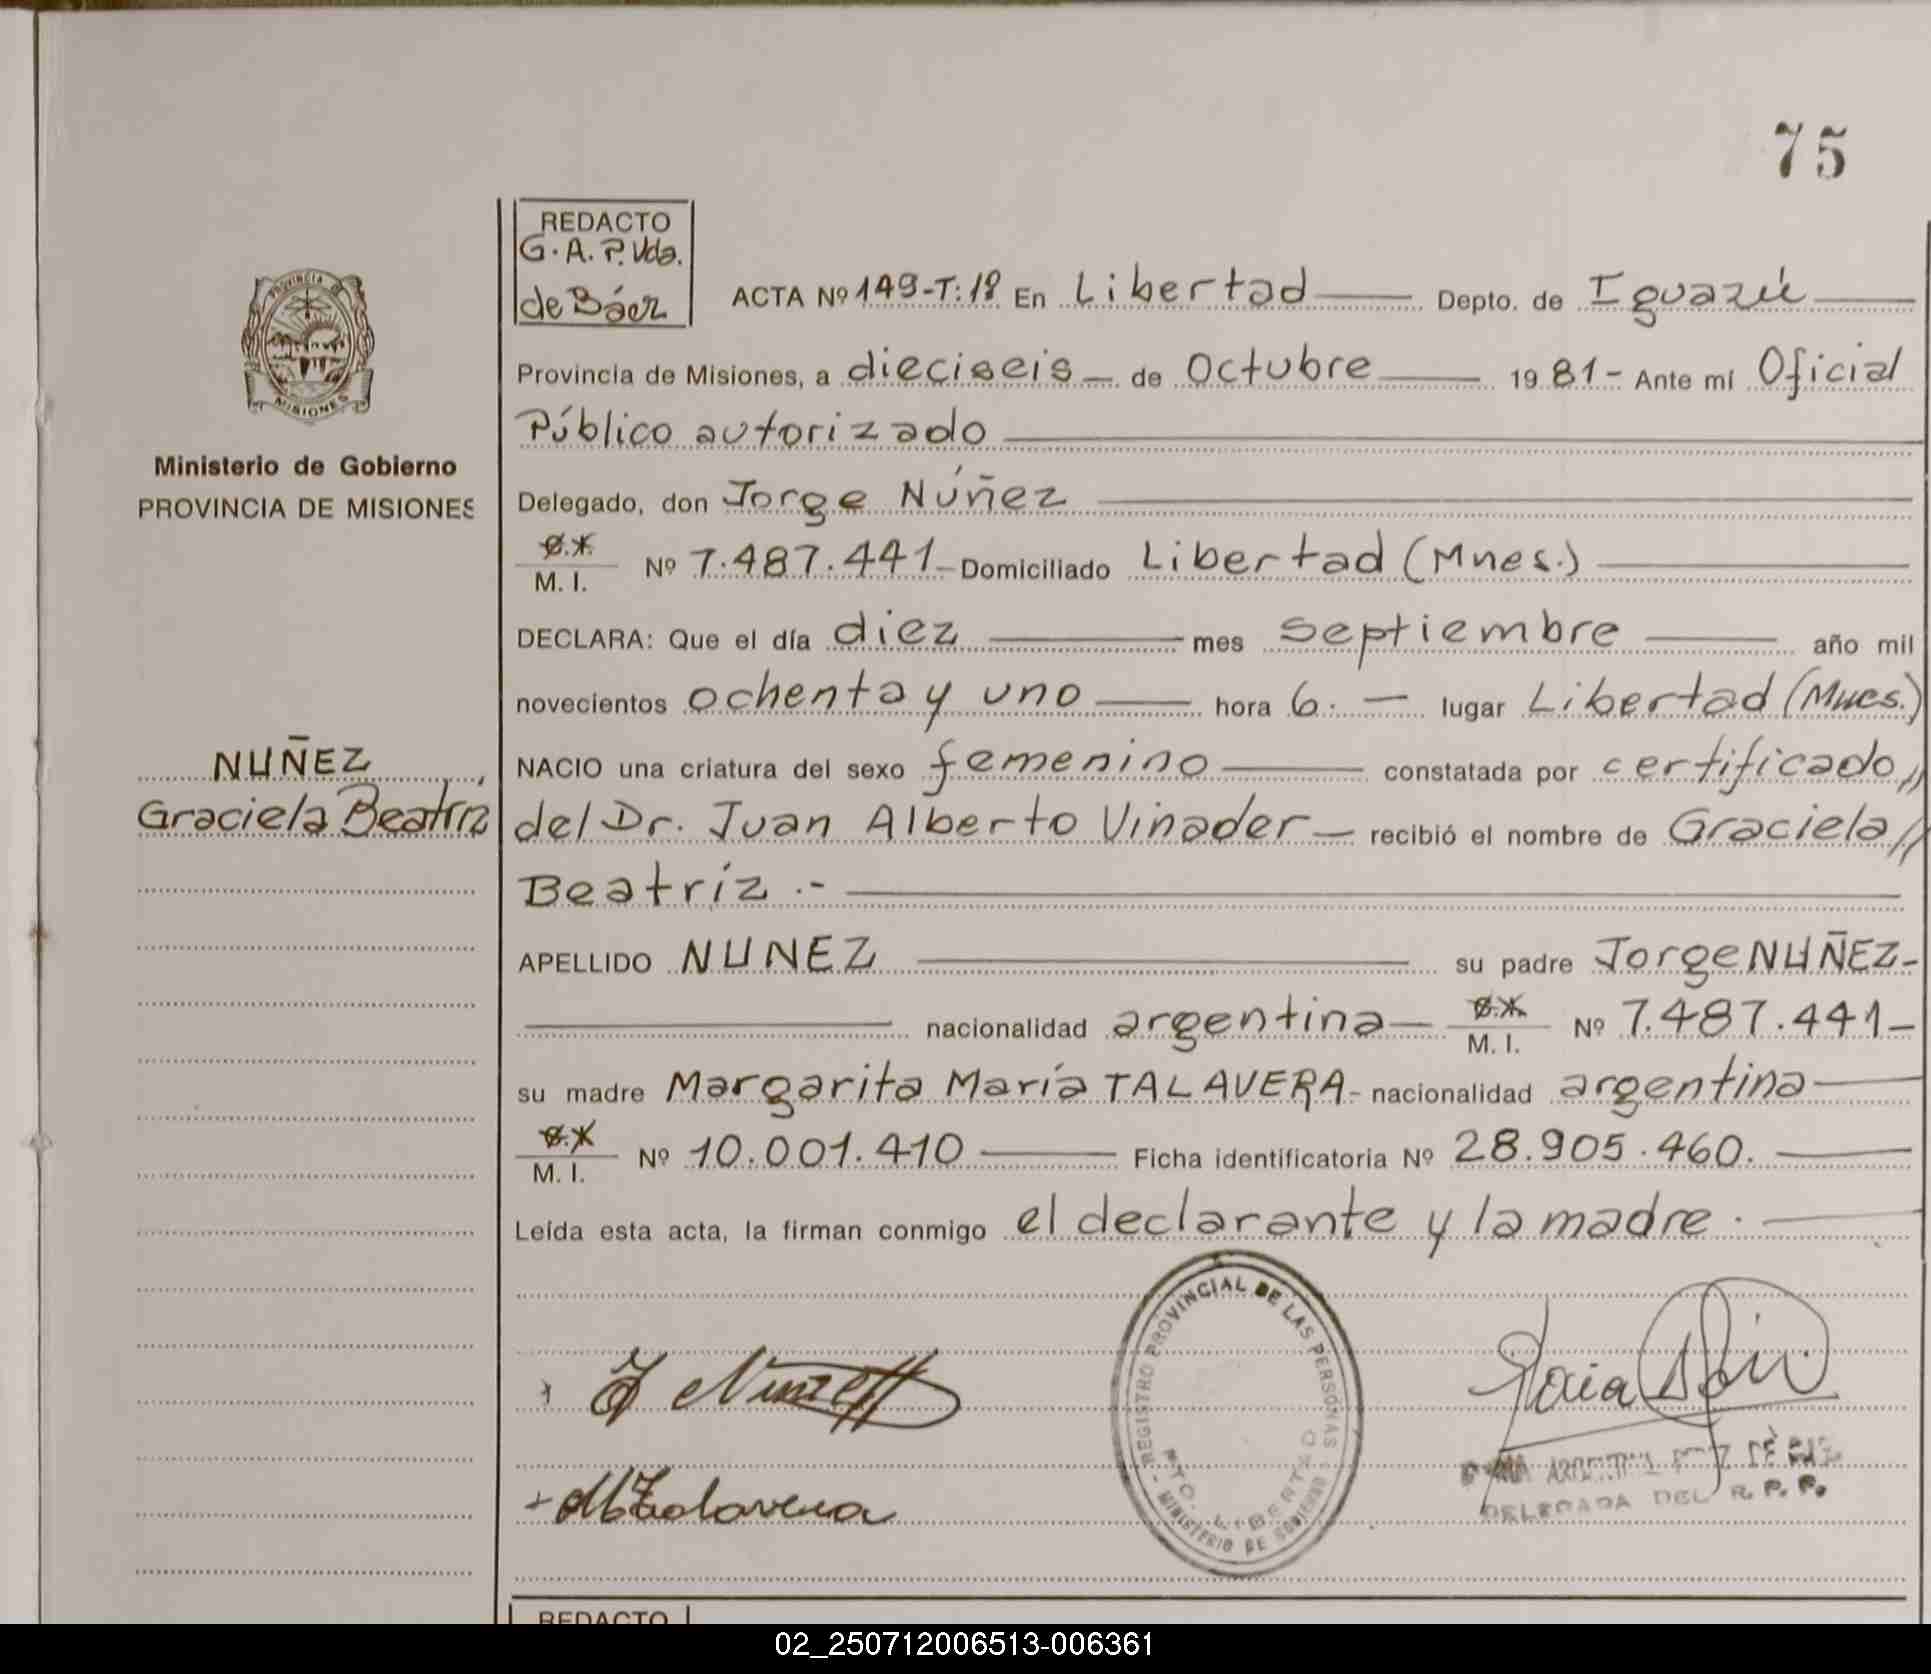 75
REDACTO
G. A. P. Vda.
de Báez
ACTA Nº 149-T:1º En Libertad Depto. de Iguazú
Provincia de Misiones, a dieciseis de Octubre 1981- Ante mí Oficial
Público autorizado
Delegado, don Jorge Núñez
M. I. Nº 7.487.441- Domiciliado Libertad (Mnes.)
DECLARA: Que el día diez mes septiembre año mil
novecientos ochenta y uno hora 6. lugar Libertad (Mnes.)
NACIO una criatura del sexo femenino constatada por certificado //
del Dr. Juan Alberto Vinader recibió el nombre de Graciela //
Beatríz .-
APELLIDO NUNEZ su padre Jorge NUÑEZ-
nacionalidad argentina M. I. Nº 7.487.441-
su madre Margarita María TALAVERA- nacionalidad argentina
M. I. Nº 10.001.410 Ficha identificatoria Nº 28.905.460.
Leída esta acta, la firman conmigo el declarante y la madre.
Provincia de
MISIONES
Ministerio de Gobierno
PROVINCIA DE MISIONES
NUÑEZ,
Graciela Beatríz
J Nuñez
MTalavera
REGISTRO PROVINCIAL DE LAS PERSONAS
MINISTERIO DE GOBIERNO
PTO. LIBERTAD
DELEGADA DEL R. P. P.
REDACTO
02_250712006513-006361